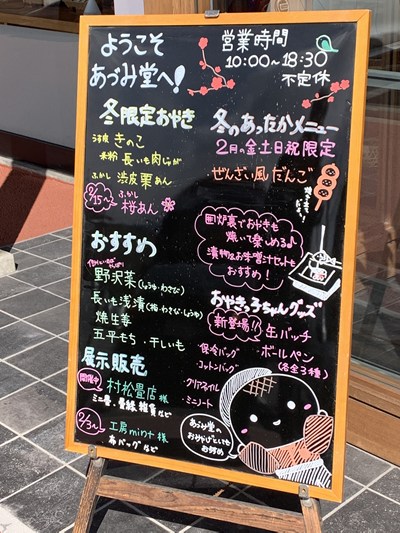 ようこそ
あづみ堂へ!
営業時間
10:00〜18:30
不定休
冬限定おやき
うす皮 きのこ
米粉 長いも肉じゃが
ふかし 渋皮栗あん
2/15〜 ふかし 桜あん
冬のあったかメニュー
2月の金土日祝限定
ぜんざい風だんご
囲炉裏でおやきも
焼いて楽しめる♪
漬物&お味噌汁セットも
おすすめ!
おすすめ
野沢菜(しょうゆ・わさび)
長いも浅漬(梅・わさび・しょうゆ)
焼生姜
五平もち・干しいも
おやきっ子ちゃんグッズ
新登場!! 缶バッチ
・保冷バッグ ・ボールペン
・コットンバッグ (各全3種)
・クリアファイル
・ミニノート
展示販売
開催中 村松畳店 様
ミニ畳・畳縁雑貨など
2/3〜 工房mint 様
布バッグなど
あづみ堂の
おやきがとっても
おすすめ